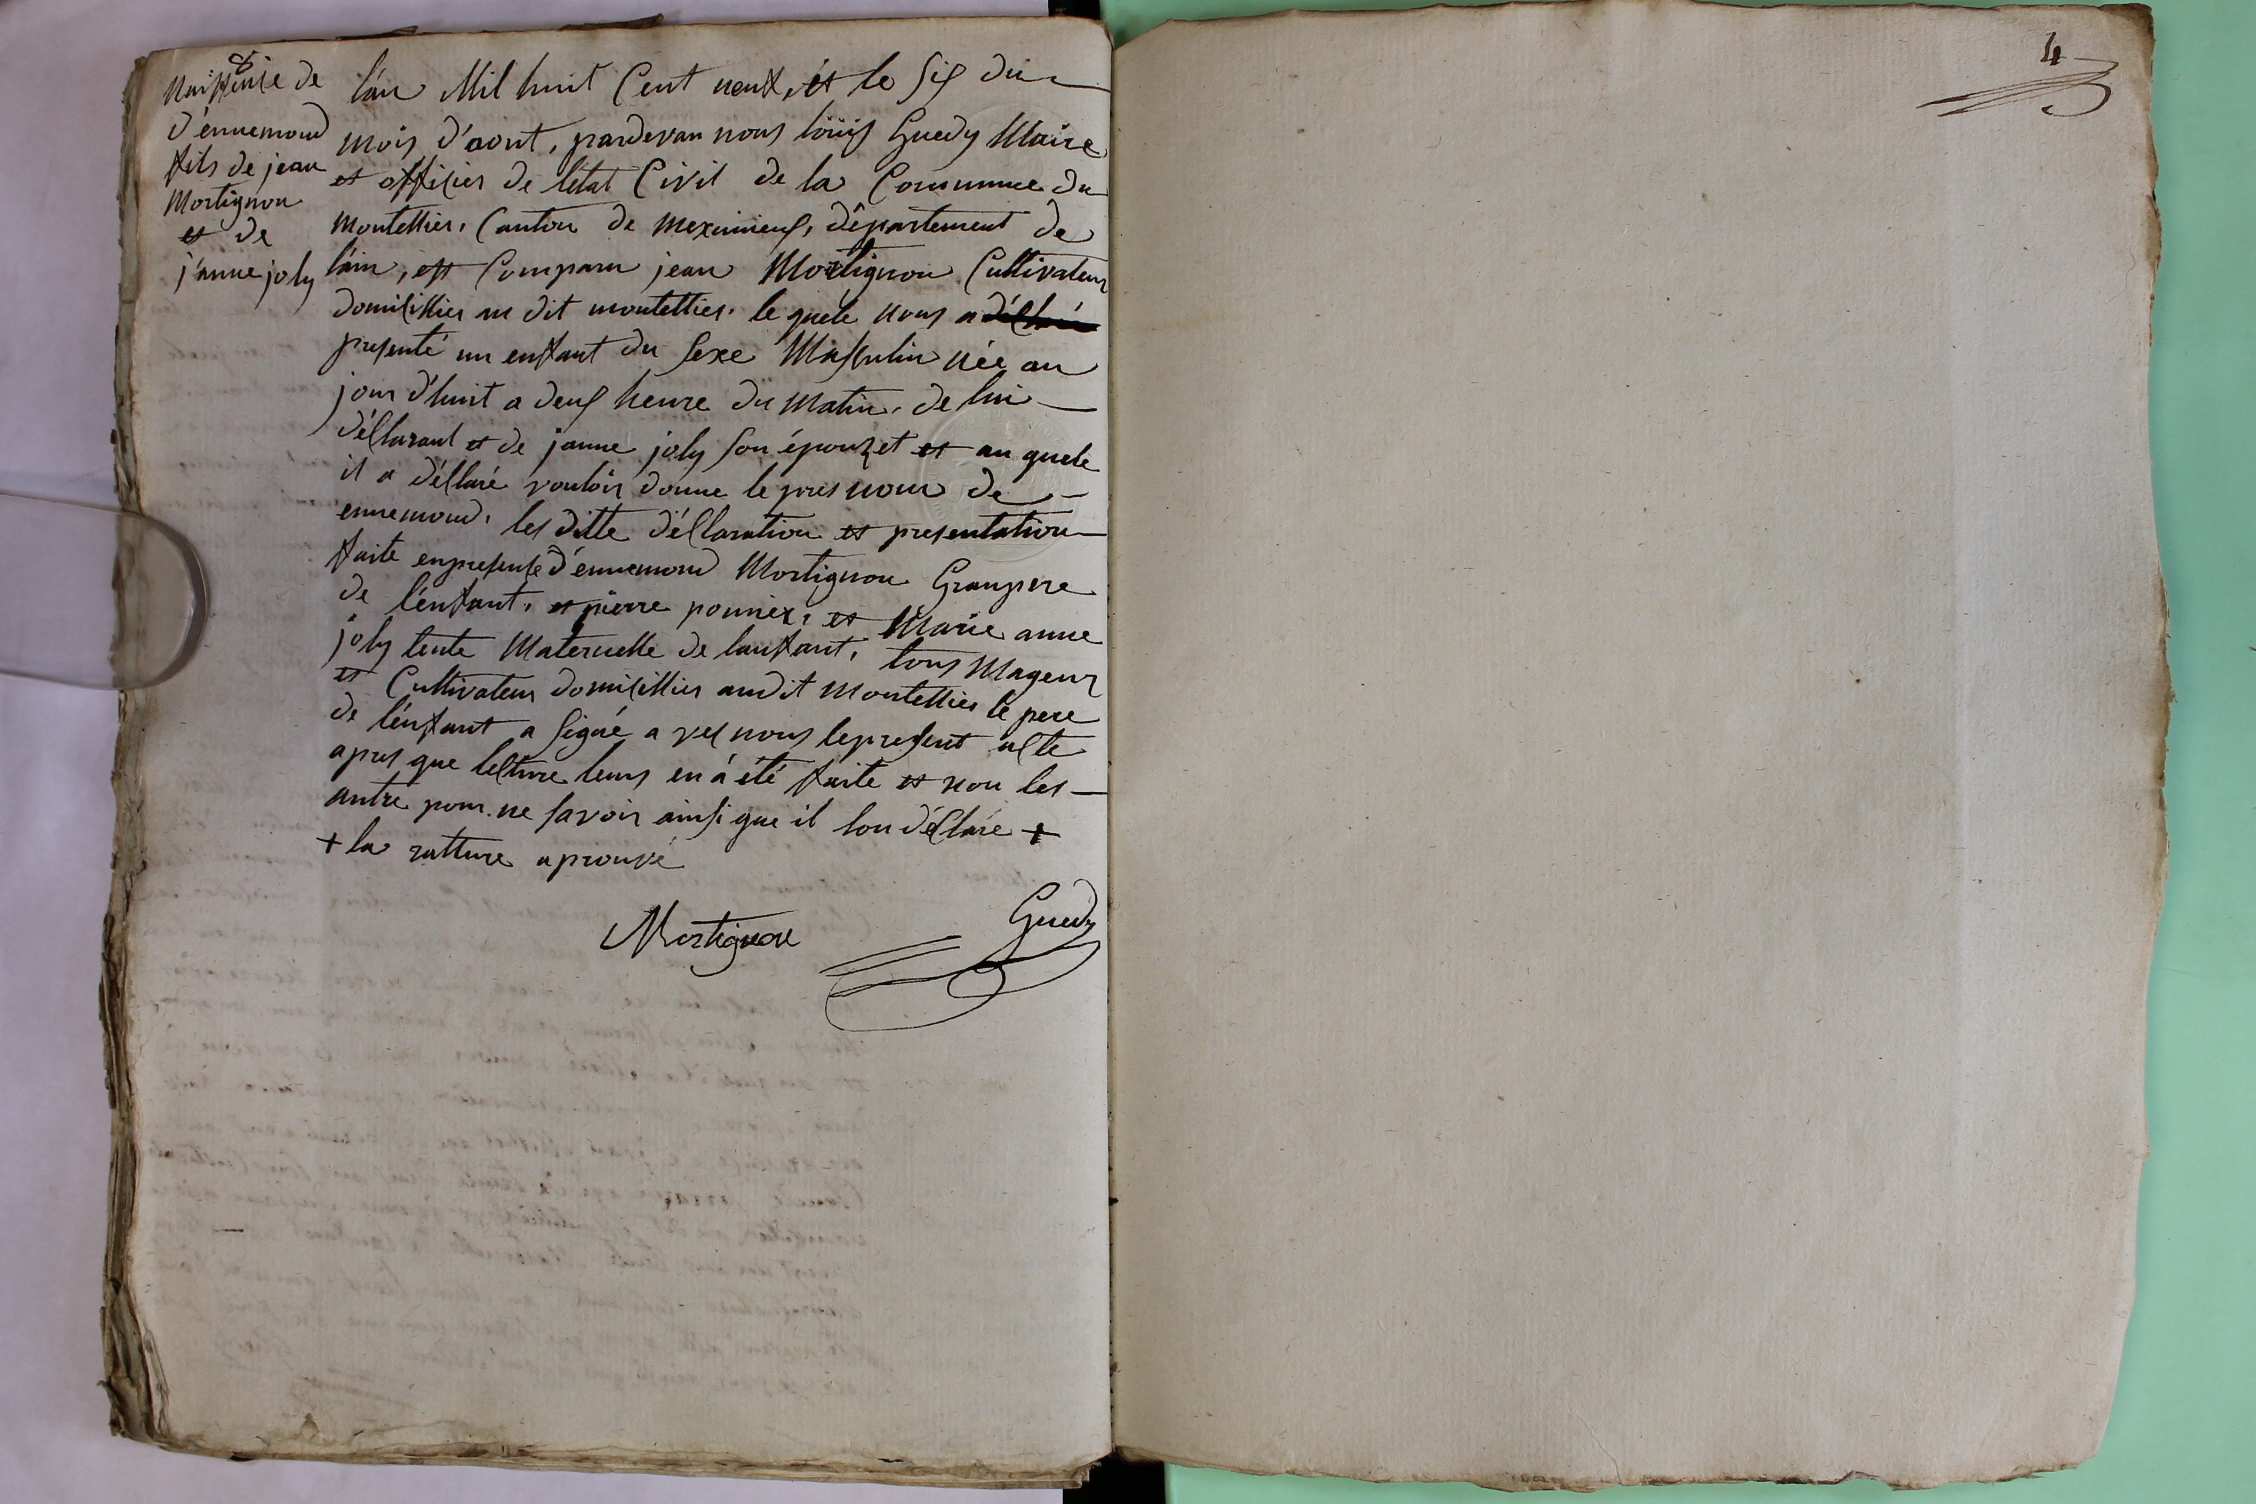 8
Naissence de
d'ennemond
fils de jean
Mortignon
et de
j'anne joly
l'an Mil huit Cent neuf, et le six du
mois d'aout, pardevan nous loüis Guedy Maire
et officier de l'état Civil de la Commune du
montellier, Canton de meximieux, département de
l'ain, est Comparu jean Mortignon Cultivateur
domicillier au dit montellier, le quele nous a déclaré
presenté un enfant du sexe Masculin née au
jour d'huit a deux heure du matin, de lui
déclarant et de janne joly son épouzet et au quele
il a déclaré vouloir donne le pres nom de
ennemond, les ditte déclaration et presentation
faite en presence d'ennemond Mortignon Granpere
de l'enfant, et pierre pounier, et Marie anne
joly tente Maternelle de lanfant, tous Mageur
et Cultivateur domicillier audit montellier le pere
de l'énfant a signé a vec nous le present acte
apres que lecture leurs en á été faite et non les
autre pour ne savoir ainsi que il lon déclare +
+ la ratture aprouvé
Mortignon
Guedy
4